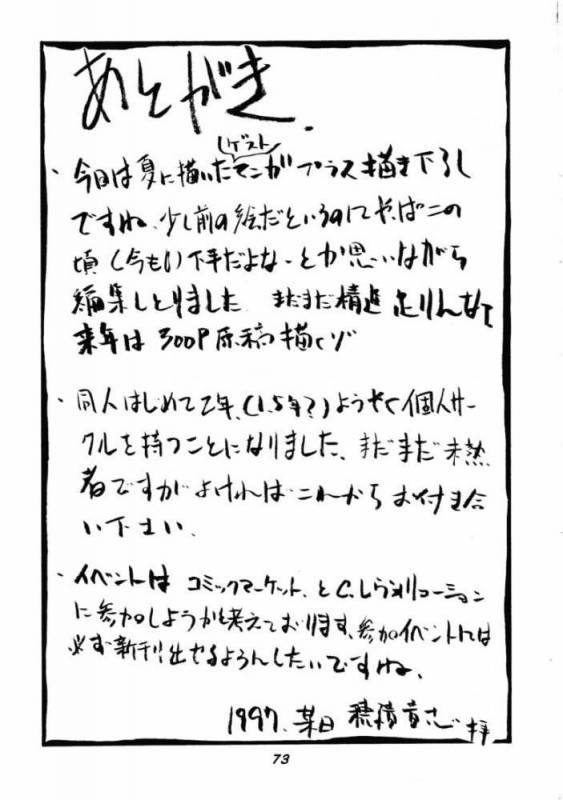 あとがき.
ゲスト
・今回は夏に描いたマンガ プラス描き下ろし
ですね、少し前の絵だというのにやっぱこの
頃(今も)下手だよなーとか思いながら
編集しとりました まだまだ精進足りんなて
来年は300P原稿描くゾ
・同人はじめて2年、(1.5年?)ようやく個人サー
クルを持つことになりました、まだまだ未熟
者ですがよければこれからお付き合
い下さい、
・イベントは コミックマーケット、とC.レヴォリューション
に参加しようかと考えております、参加イベントには
必ず新刊出せるようんしたいですね、
1997. 某日 穂積 拝
73